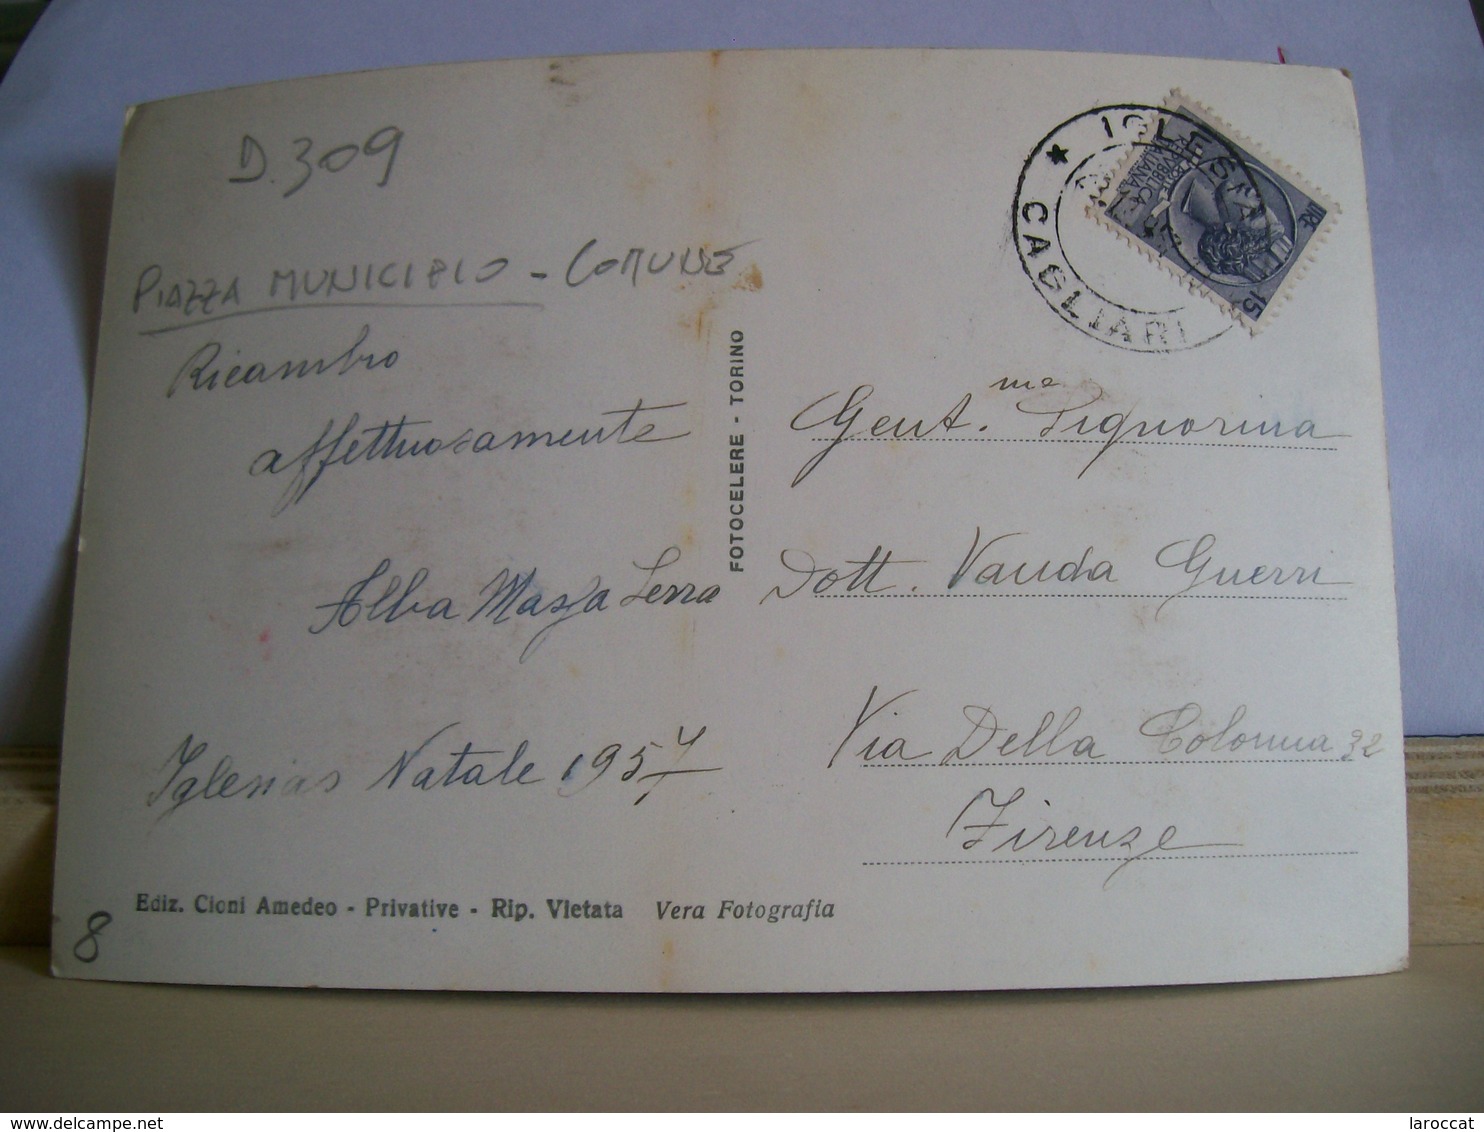 D. 309
PIAZZA MUNICIPIO - COMUNE
Ricambio
affettuosamente
Alba Massa Serra
Iglesias Natale 1957
Ediz. Cioni Amedeo - Privative - Rip. Vietata Vera Fotografia
8
FOTOCELERE - TORINO
IGLESIAS
CAGLIARI
LIRE 15
Gent.me Signorina
Dott. Vanda Guerri
Via Della Colonna 32
Firenze
laroccat